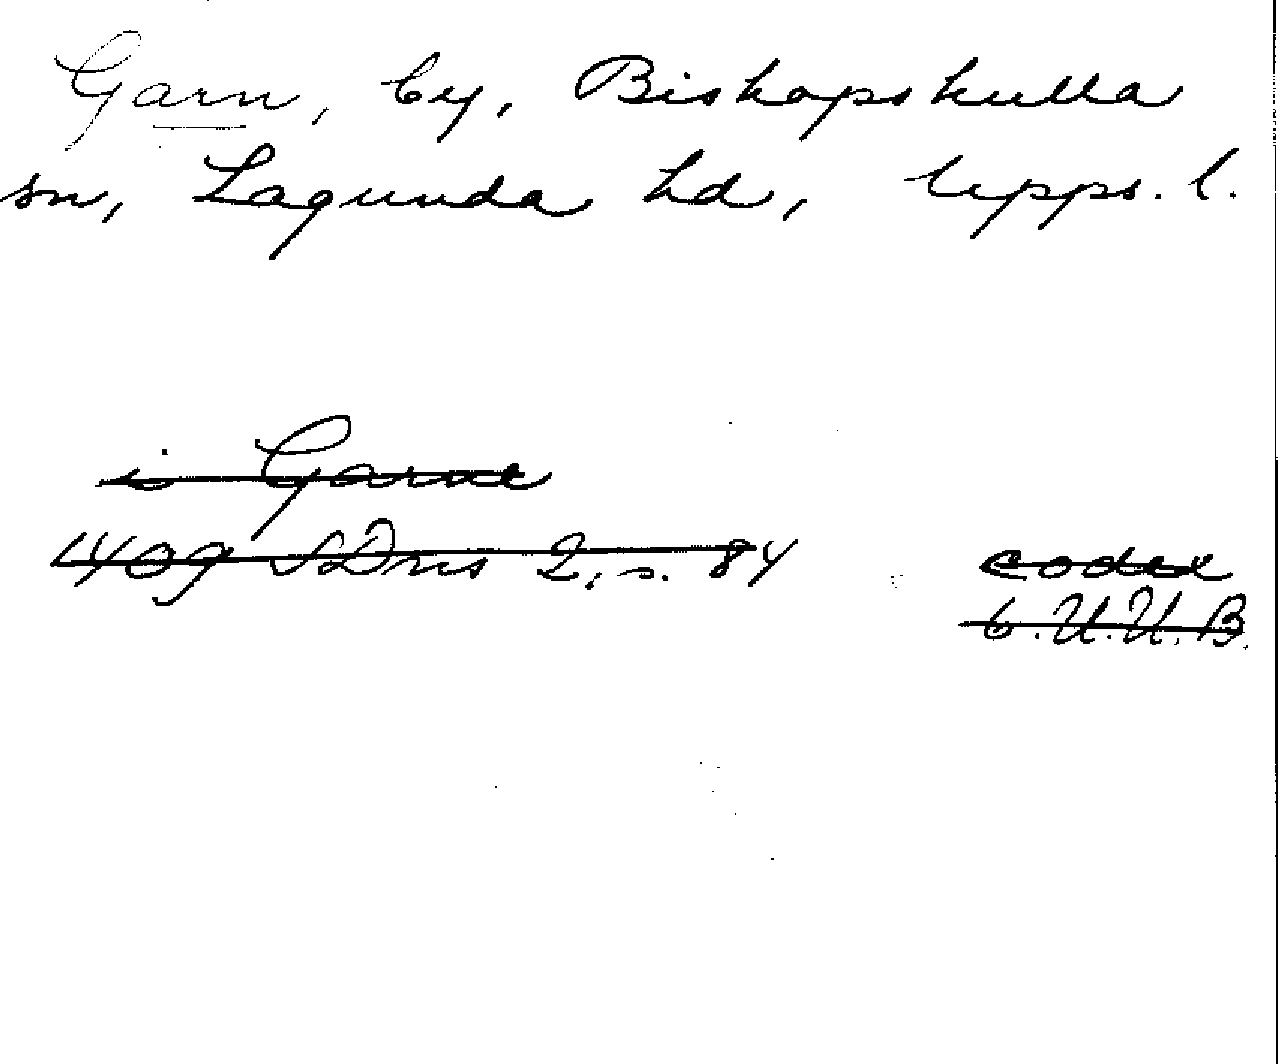 Garn, by, Biskopskulla
sn, Lagunda hd, Upps. l.
i Garne
1409 SDns 2, s. 84 codex
b. U.U.B.